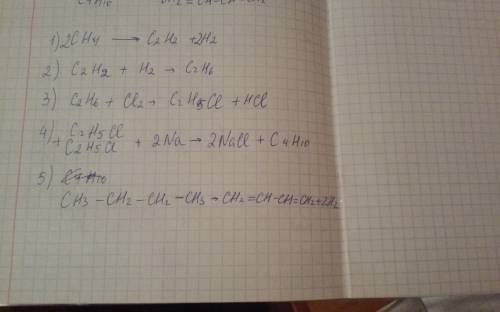 C4H10 CH2=CH-CH=CH2
1) 2CH4 → C2H2 + 2H2
2) C2H2 + H2 → C2H6
3) C2H6 + Cl2 → C2H5Cl + HCl
4) C2H5Cl
+ C2H5Cl + 2Na → 2NaCl + C4H10
5) C4H10
CH3-CH2-CH2-CH3 → CH2=CH-CH=CH2+2H2